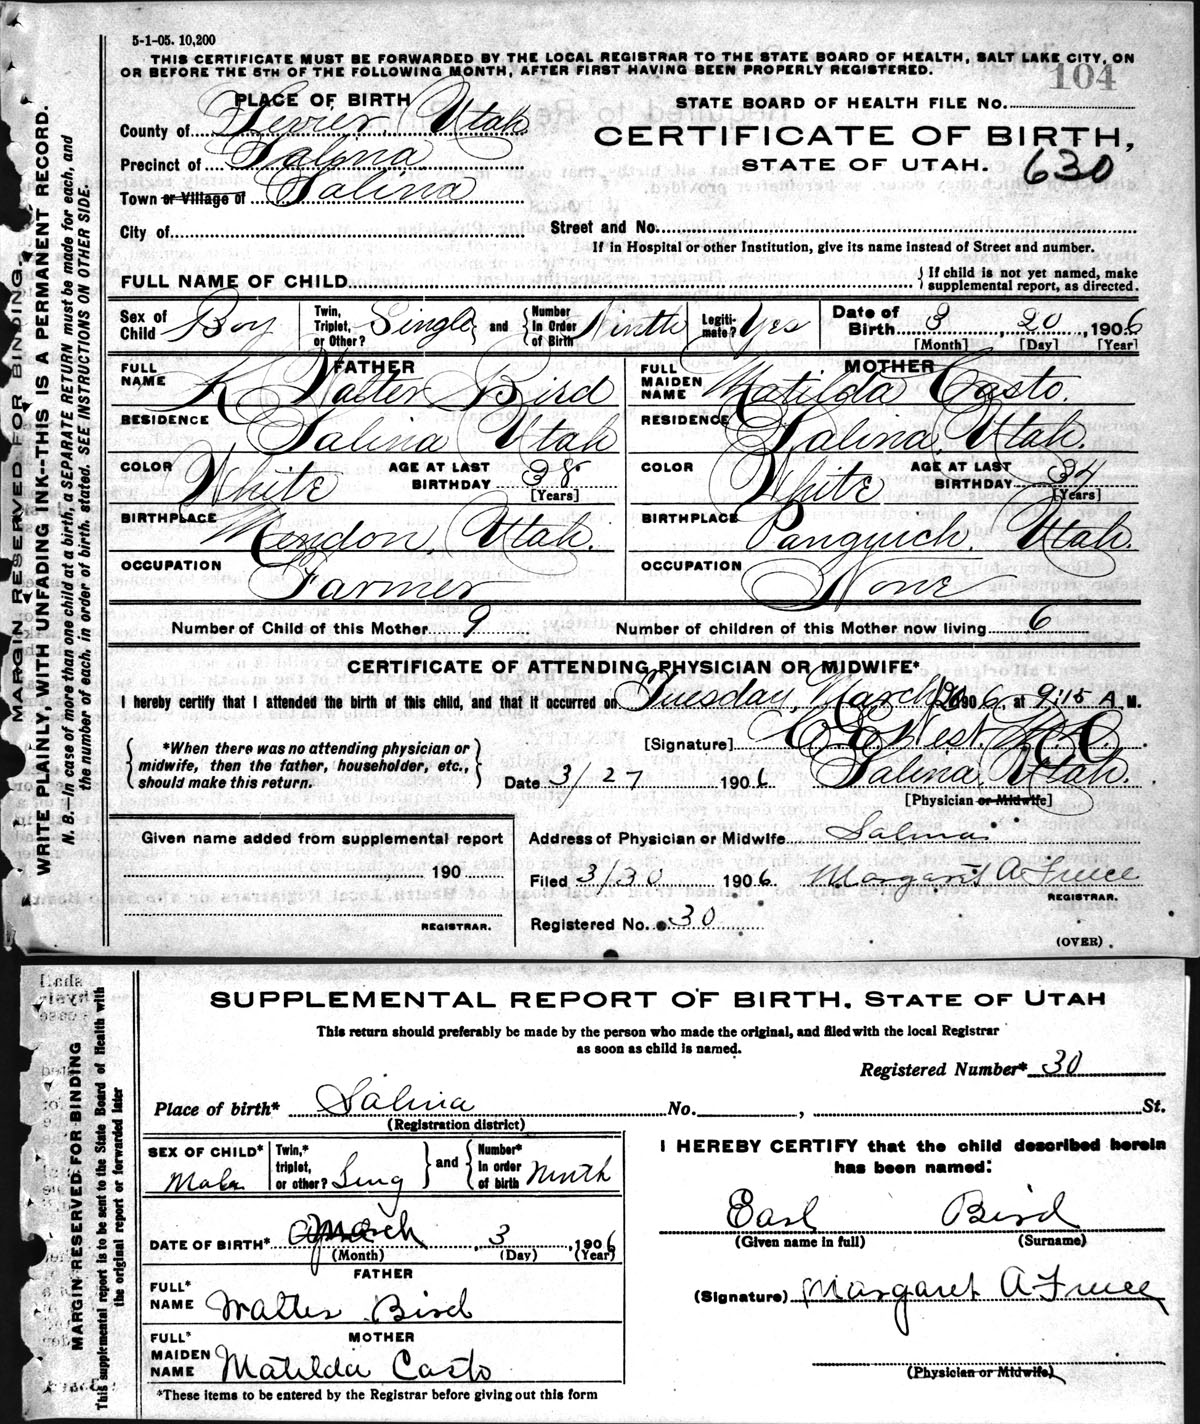 5-1-05. 10,200
THIS CERTIFICATE MUST BE FORWARDED BY THE LOCAL REGISTRAR TO THE STATE BOARD OF HEALTH, SALT LAKE CITY, ON
OR BEFORE THE 5TH OF THE FOLLOWING MONTH, AFTER FIRST HAVING BEEN PROPERLY REGISTERED.
104
PLACE OF BIRTH
STATE BOARD OF HEALTH FILE NO.
County of Sevier, Utah
CERTIFICATE OF BIRTH,
Precinct of Salina
STATE OF UTAH. 630
Town or Village of Salina
City of
Street and No.
If in Hospital or other Institution, give its name instead of Street and number.
FULL NAME OF CHILD
{ If child is not yet named, make
supplemental report, as directed.
Sex of Child Boy
Twin, Triplet, or Other? Single } and { Number in Order of Birth Ninth
Legitimate? Yes
Date of Birth 3, 20, 1906
[Month] [Day] [Year]
FATHER
FULL NAME Walter Bird
RESIDENCE Salina Utah
COLOR White AGE AT LAST BIRTHDAY 38
[Years]
BIRTHPLACE Mendon, Utah.
OCCUPATION Farmer
MOTHER
FULL MAIDEN NAME Matilda Casto.
RESIDENCE Salina, Utah.
COLOR White AGE AT LAST BIRTHDAY 34
[Years]
BIRTHPLACE Panguich, Utah.
OCCUPATION None
Number of Child of this Mother 9 Number of children of this Mother now living 6
CERTIFICATE OF ATTENDING PHYSICIAN OR MIDWIFE*
I hereby certify that I attended the birth of this child, and that it occurred on Tuesday, March 20 1906, at 9:15 A. M.
{ *When there was no attending physician or
midwife, then the father, householder, etc.,
should make this return. }
[Signature] West M.D.
Date 3/27 1906 Salina Utah.
[Physician or Midwife]
Given name added from supplemental report
190
REGISTRAR.
Address of Physician or Midwife Salina
Filed 3/30 1906 Margaret A Freece
REGISTRAR.
Registered No. 30
(OVER)
MARGIN RESERVED FOR BINDING.
WRITE PLAINLY, WITH UNFADING INK--THIS IS A PERMANENT RECORD.
N. B.—In case of more than one child at a birth, a SEPARATE RETURN must be made for each, and
the number of each, in order of birth, stated. SEE INSTRUCTIONS ON OTHER SIDE.
SUPPLEMENTAL REPORT OF BIRTH, STATE OF UTAH
This return should preferably be made by the person who made the original, and filed with the local Registrar
as soon as child is named.
Registered Number* 30
Place of birth* Salina No. , St.
(Registration district)
SEX OF CHILD* Male
Twin,* triplet, or other? Sing } and { Number* in order of birth Ninth
I HEREBY CERTIFY that the child described herein
has been named:
DATE OF BIRTH* March, 3, 1906
(Month) (Day) (Year)
Earl Bird
(Given name in full) (Surname)
FATHER
FULL* NAME Walter Bird
(Signature) Margaret A Freece
MOTHER
FULL* MAIDEN NAME Matilda Casto
(Physician or Midwife)
*These items to be entered by the Registrar before giving out this form
MARGIN RESERVED FOR BINDING
This supplemental report is to be sent to the State Board of Health with
the original report or forwarded later